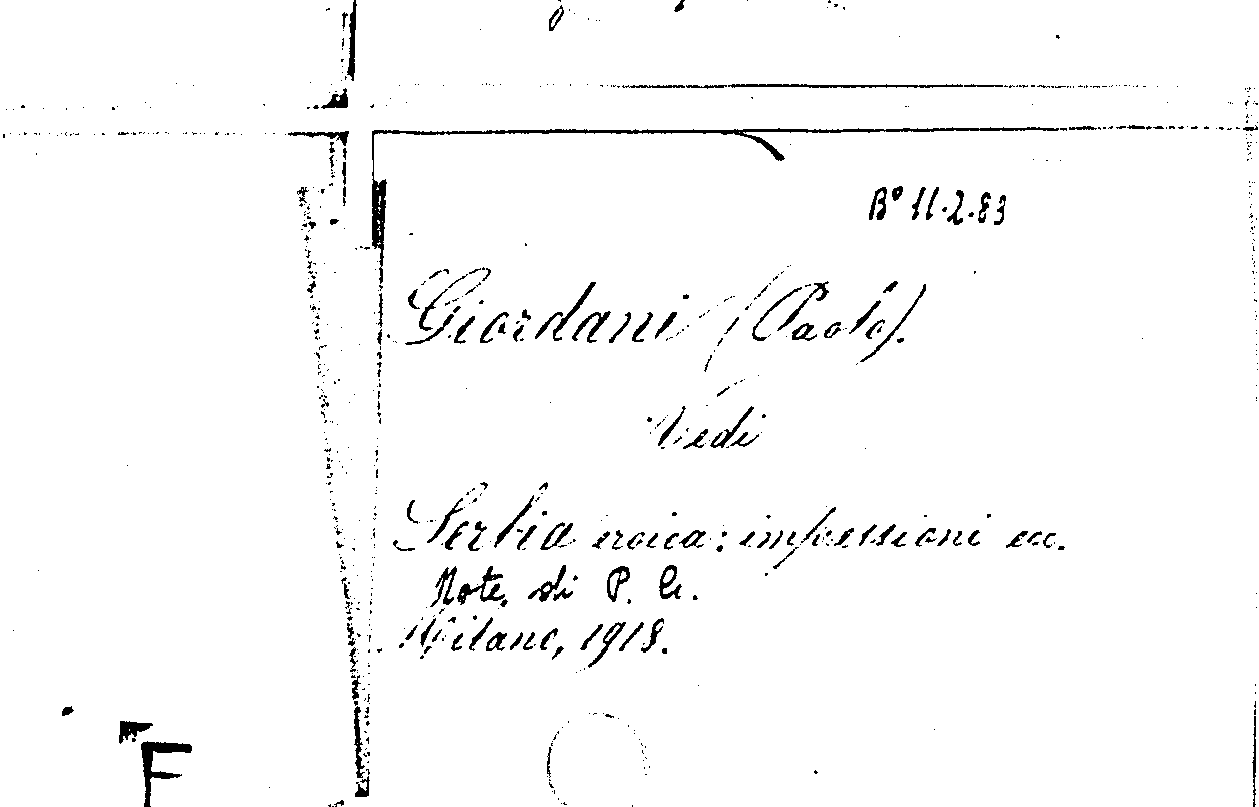 B° 11.2.83
Giordani (Paolo).
Vedi
Serbia eroica: impressioni ecc.
Note di P. G.
Milano, 1918.
F